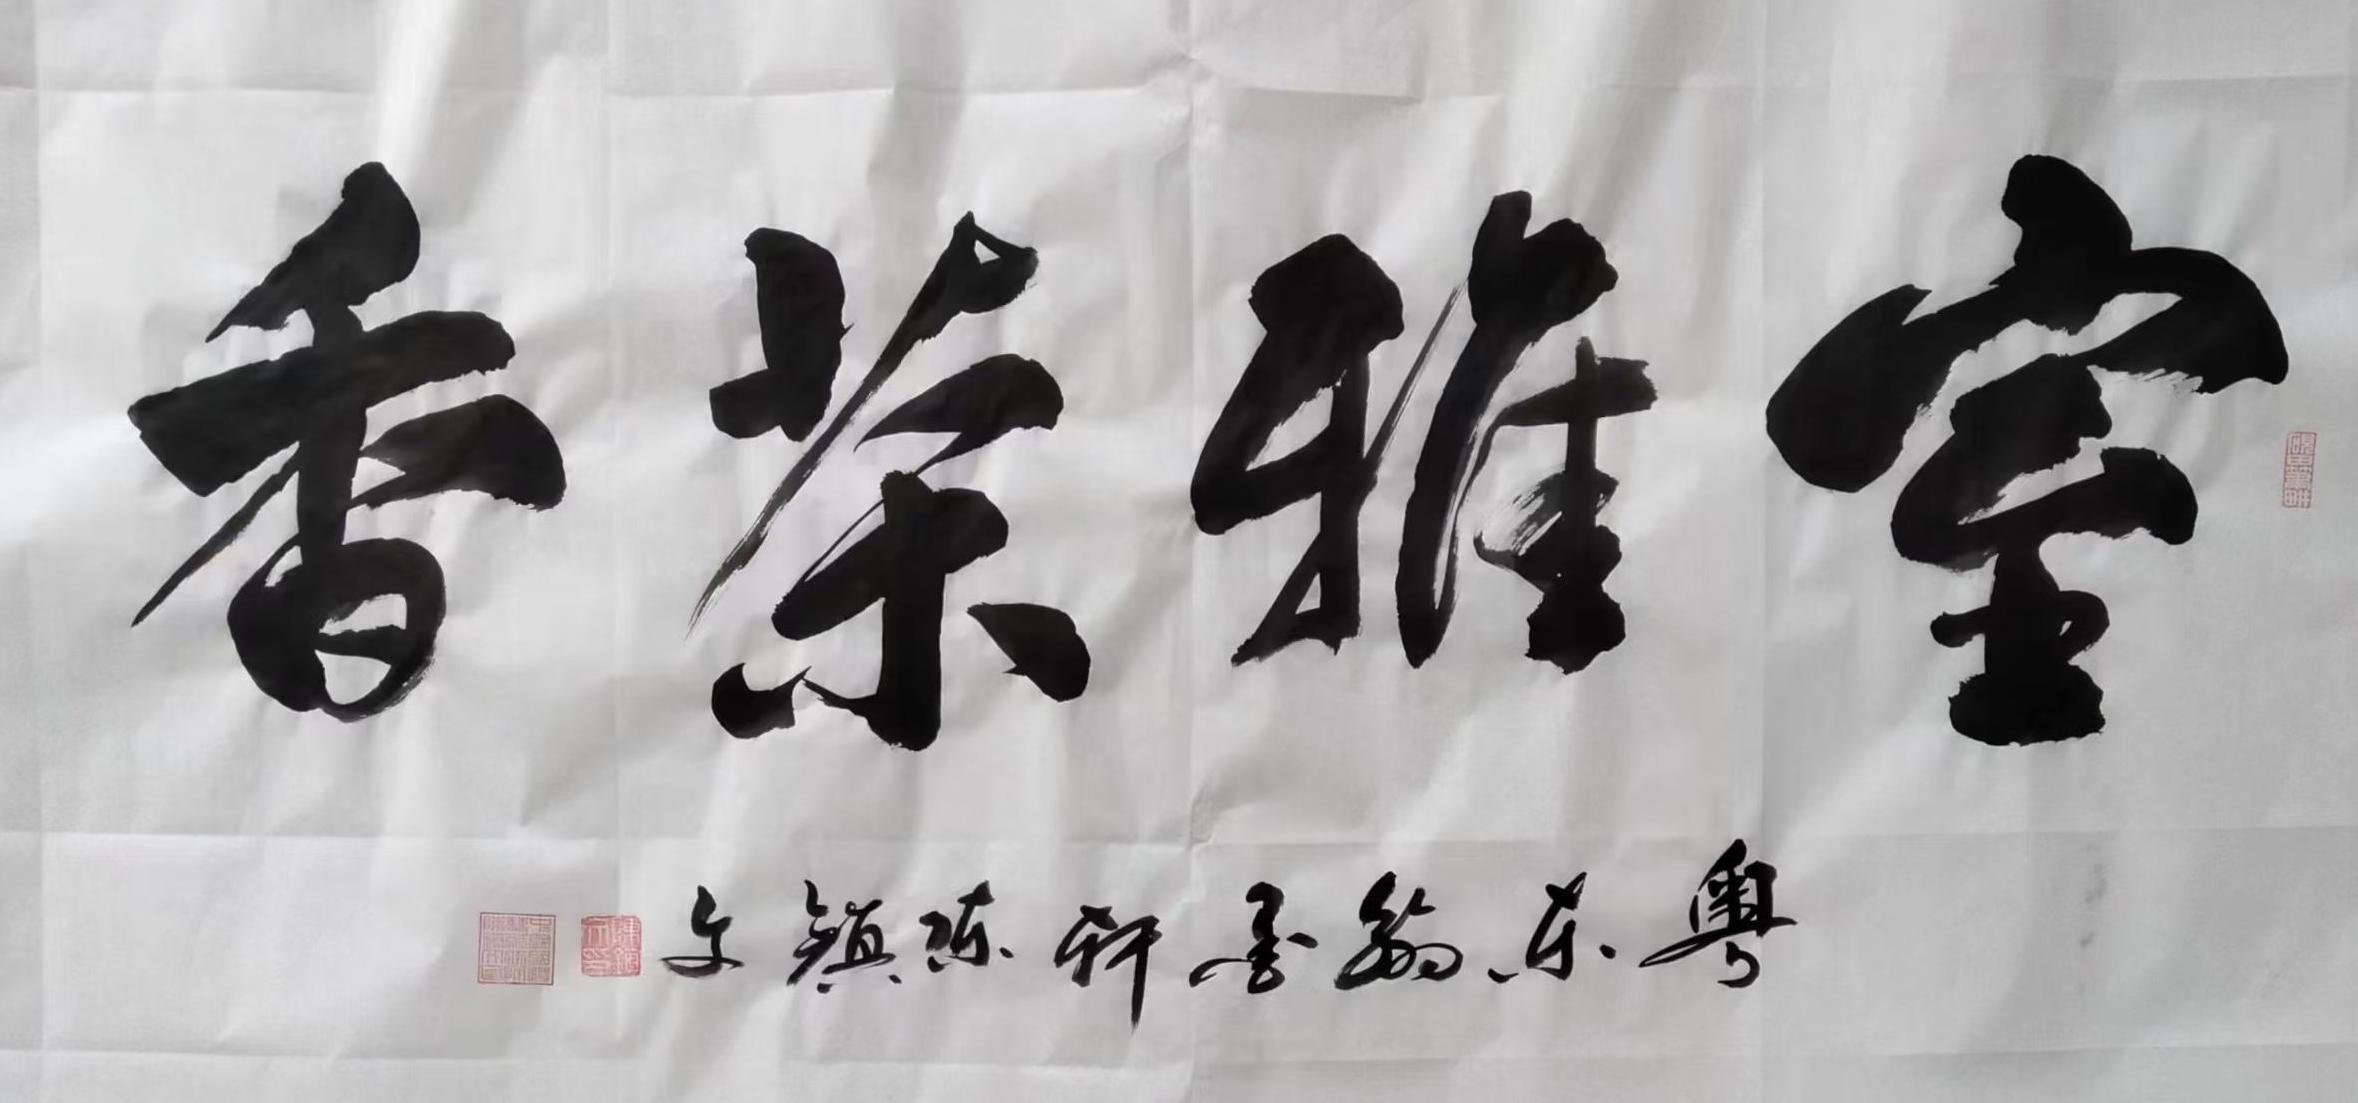 室雅茶香
粤东翰墨轩陈镇文